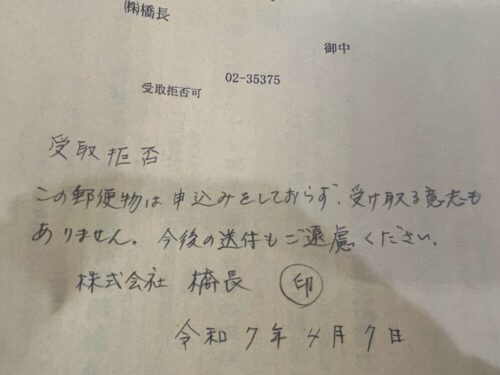 ㈱橋長
御中
02-35375
受取拒否可
受取拒否
この郵便物は申込みをしておらず、受け取る意志も
ありません。今後の送付もご遠慮ください。
株式会社 橋長 印
令和7年4月7日